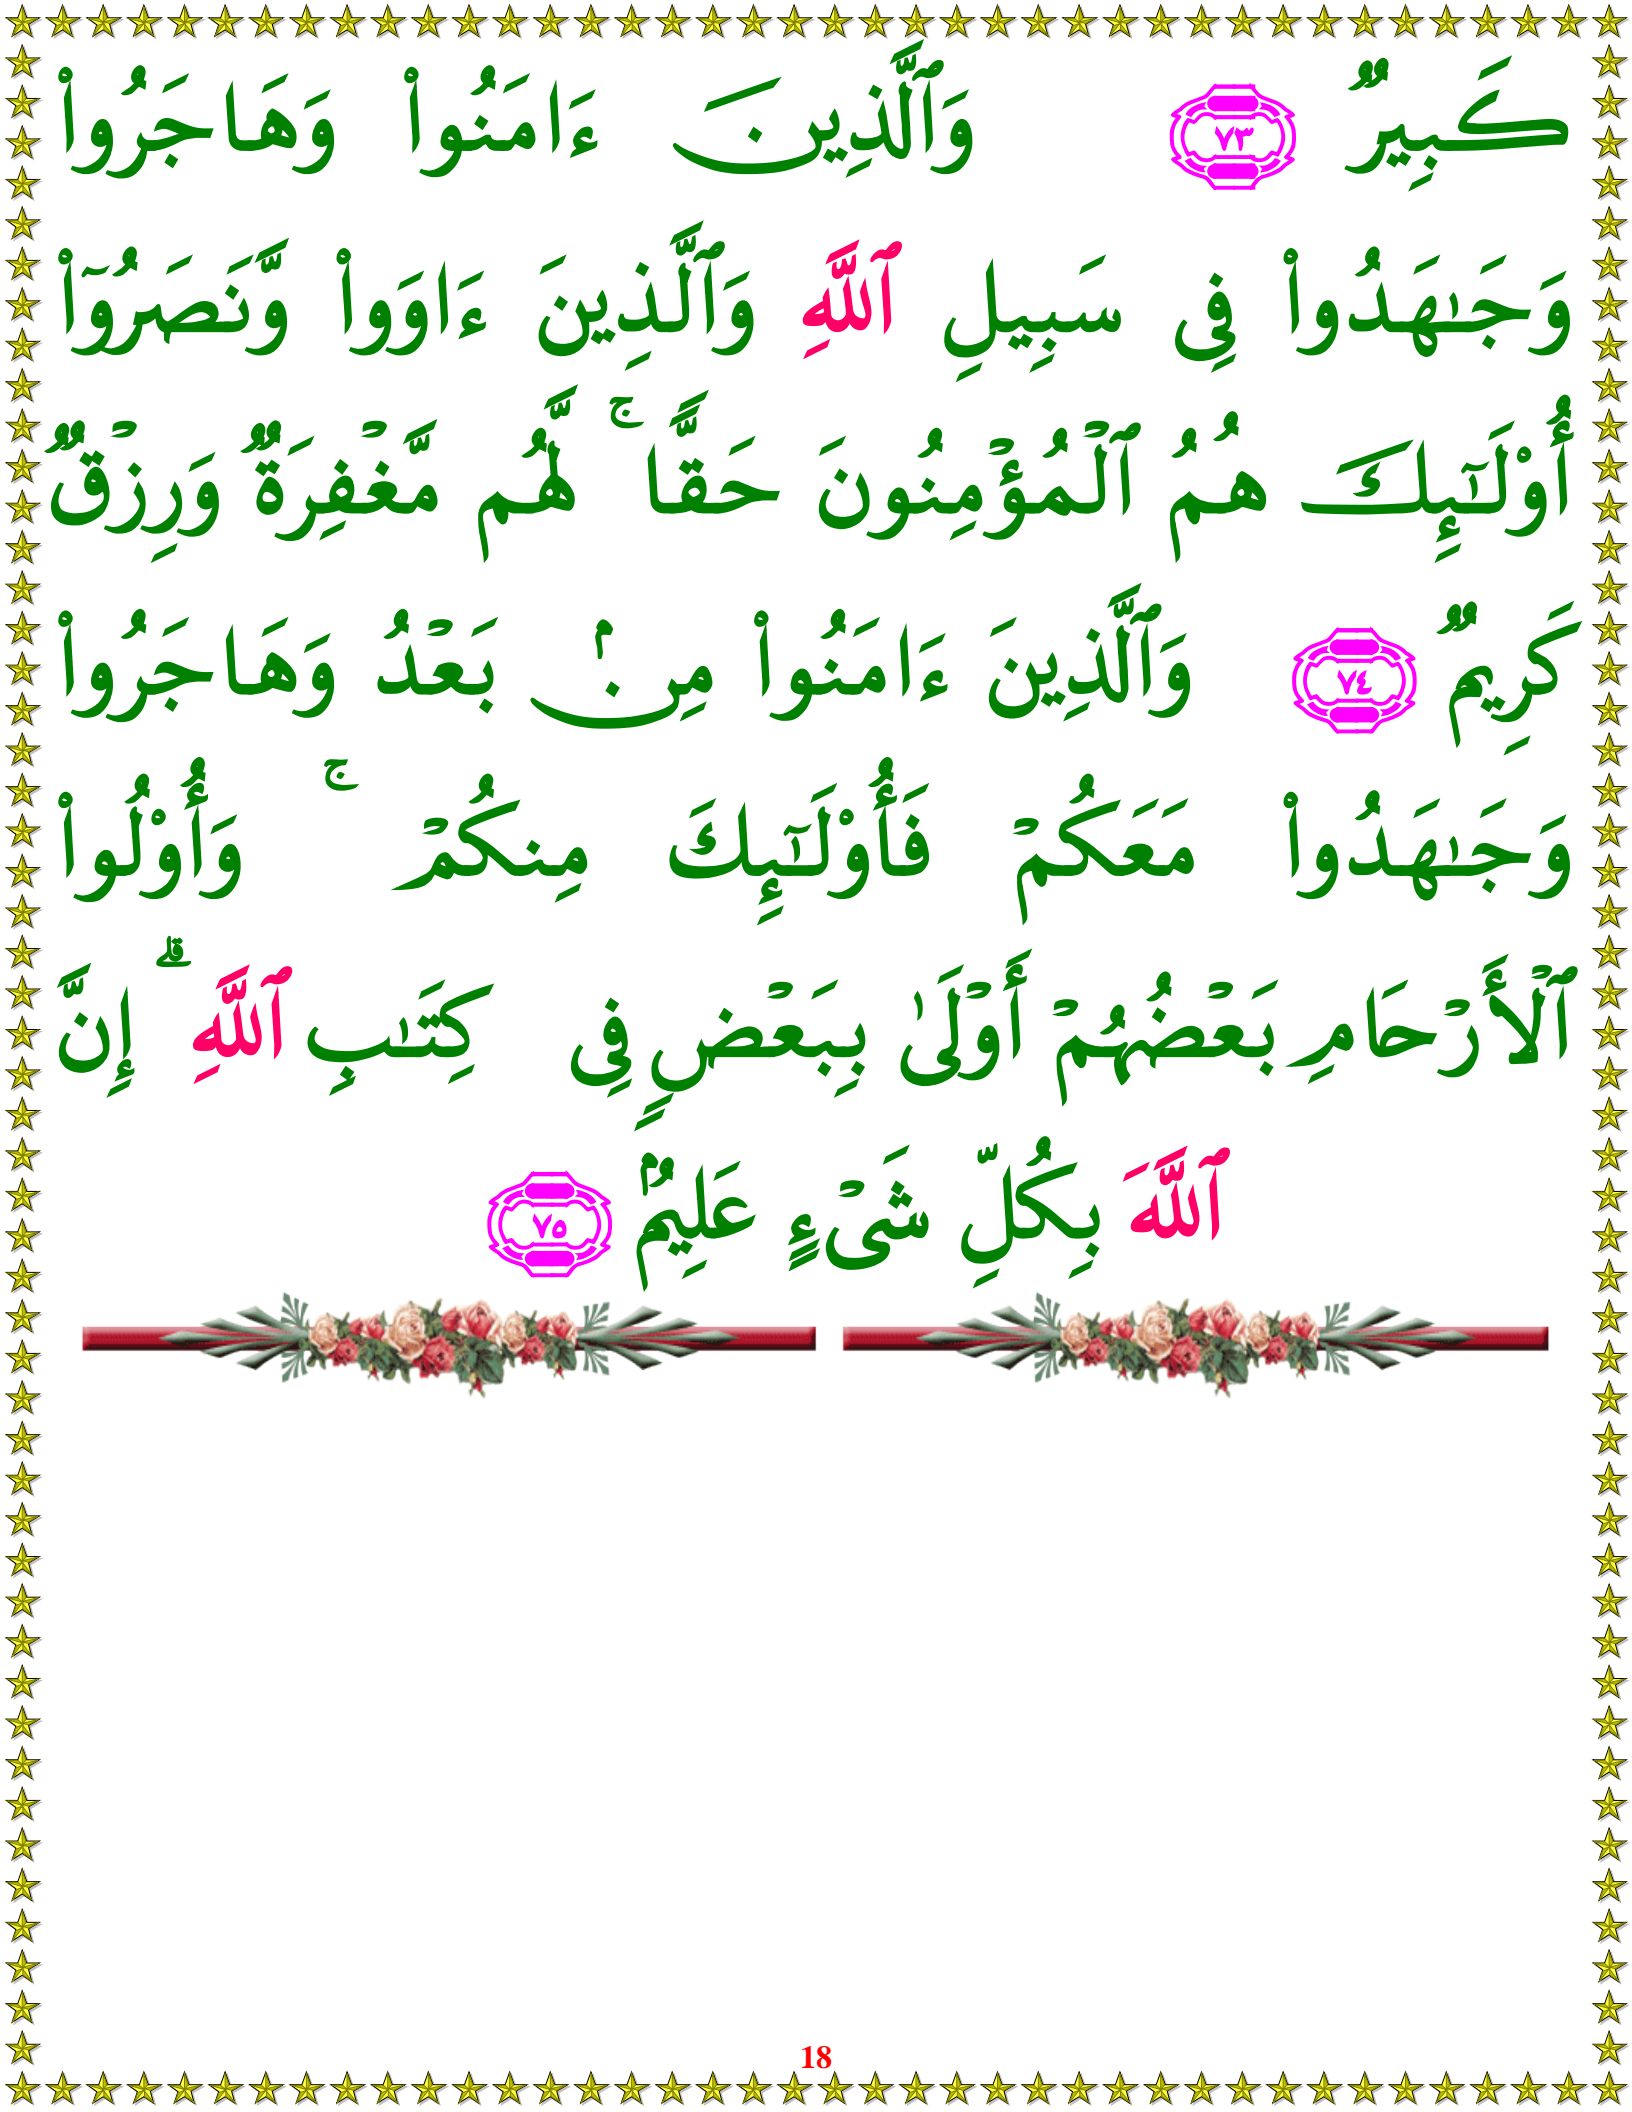 كَبِيرٌ ﴿٧٣﴾ وَٱلَّذِينَ ءَامَنُوا۟ وَهَاجَرُوا۟
وَجَـٰهَدُوا۟ فِى سَبِيلِ ٱللَّهِ وَٱلَّذِينَ ءَاوَوا۟ وَّنَصَرُوٓا۟
أُو۟لَـٰٓئِكَ هُمُ ٱلْمُؤْمِنُونَ حَقًّا ۚ لَّهُم مَّغْفِرَةٌ وَرِزْقٌ
كَرِيمٌ ﴿٧٤﴾ وَٱلَّذِينَ ءَامَنُوا۟ مِنۢ بَعْدُ وَهَاجَرُوا۟
وَجَـٰهَدُوا۟ مَعَكُمْ فَأُو۟لَـٰٓئِكَ مِنكُمْ ۚ وَأُو۟لُوا۟
ٱلْأَرْحَامِ بَعْضُهُمْ أَوْلَىٰ بِبَعْضٍ فِى كِتَـٰبِ ٱللَّهِ ۗ إِنَّ
ٱللَّهَ بِكُلِّ شَىْءٍ عَلِيمٌۢ ﴿٧٥﴾
18